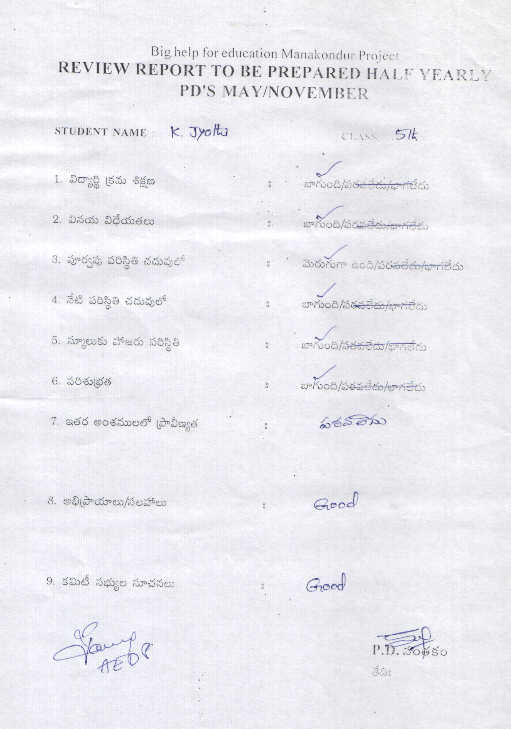 Big help for education Manakondur Project
REVIEW REPORT TO BE PREPARED HALF YEARLY
PD'S MAY/NOVEMBER
STUDENT NAME : K. Jyothi CLASS 5th
1. విద్యార్థి క్రమ శిక్షణ : బాగుంది/పరవలేదు/భాగలేదు
2. వినయ విధేయతలు : బాగుంది/పరవలేదు/భాగలేదు
3. పూర్వపు పరిస్థితి చదువులో : మెరుగుగా ఉంది/పరవలేదు/భాగలేదు
4. నేటి పరిస్థితి చదువులో : బాగుంది/పరవలేదు/భాగలేదు
5. స్కూలుకు హాజరు పరిస్థితి : బాగుంది/పరవలేదు/భాగలేదు
6. పరిశుభ్రత : బాగుంది/పరవలేదు/భాగలేదు
7. ఇతర అంశములలో ప్రావీణ్యత : పరవలేదు
8. అభిప్రాయాలు/సలహాలు : Good
9. కమిటీ సభ్యుల సూచనలు : Good
P.D. సంతకం
తేది: